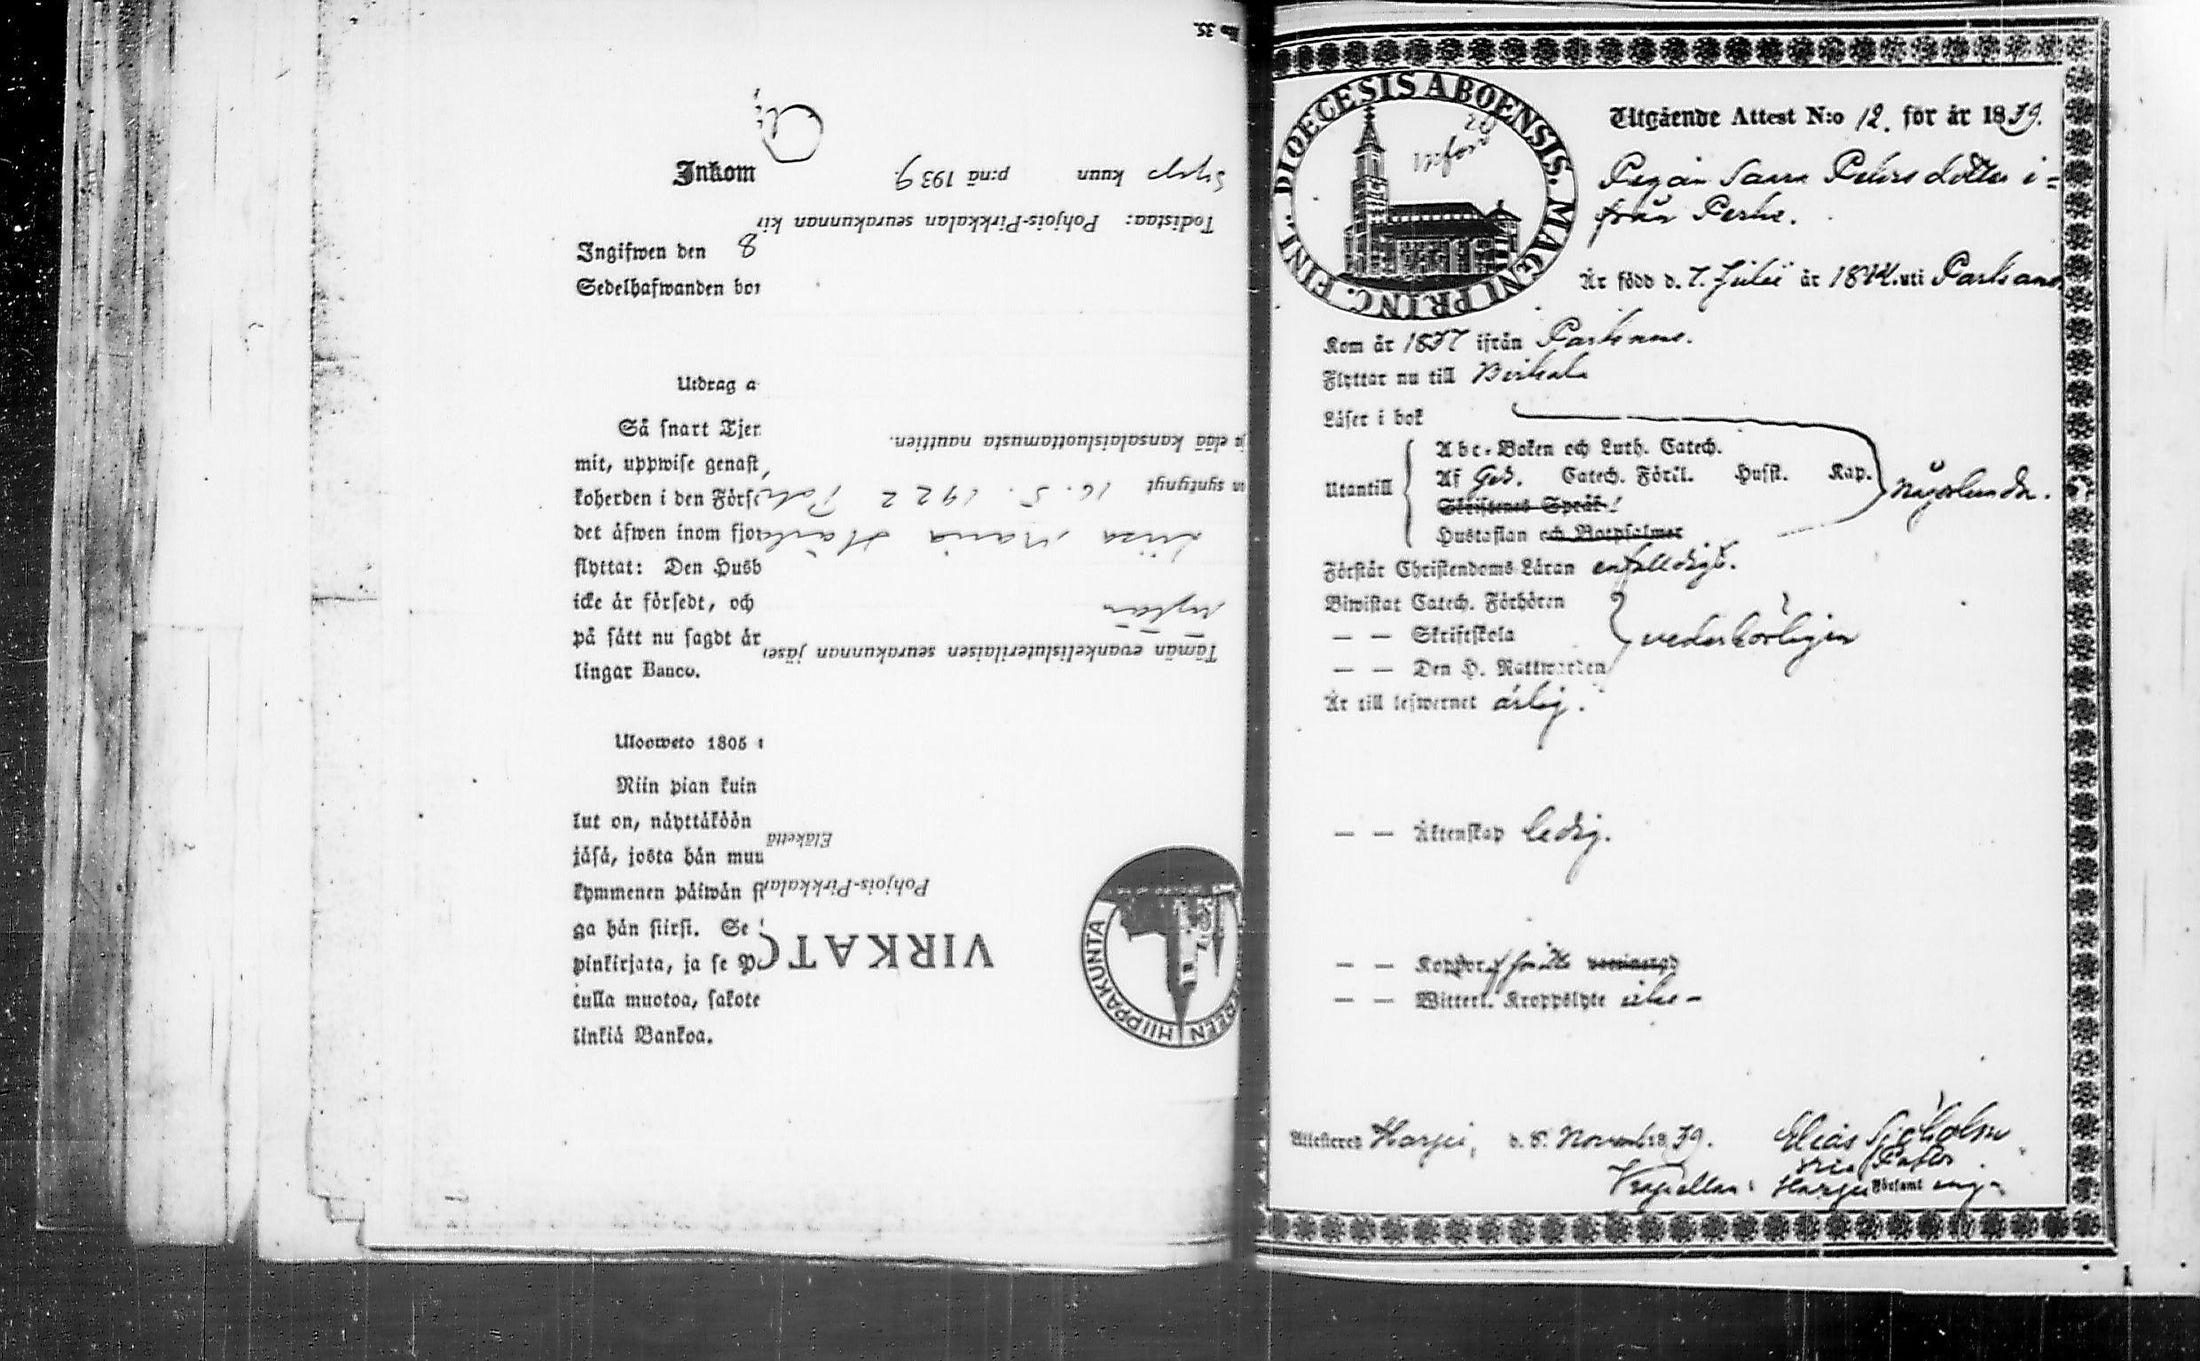 No 35.
Inkom
Ingifwen den 8
Sedelhafwanden bor
Utdrag a
Så snart Tjen
mit, uppwise genast
koherden i den Förs
det äfwen inom fjor
flyttat: Den Husb
icke är försedt, och
på sätt nu sagdt är
lingar Banco.
Ulosweto 1805
Niin pian kuin
lut on, näyttäköön
jäsä, josta hän muu
kymmenen päiwän si
ga hän siirsi. Se
pinkirjata, ja se P
tulla muotoa, sakote
linkiä Bankoa.
REEN HIIPPAKUNTA
VIRKATO
Pohjois-Pirkkalan
Eläkettä
Tämän evankelisluterilaisen seurakunnan jäsen
neiti
Liisa Maria
on syntynyt 16. 5. 1922
ja elää kansalaisluottamusta nauttien.
Todistaa: Pohjois-Pirkkalan seurakunnan kir
Syys kuun p:nä 1939.
DIOECESIS ABOENSIS. MAGNI PRINC. FINL.
20
Utgående Attest N:o 12. för år 1839.
Pigan Saara Pehrsdotter i=
från
Är född d. 7. Julii år 1814. uti Parkano
Kom år 1837 ifrån Parkano.
Flyttar nu till Birkala
Läser i bok
Utantill
Abc-Boken och Luth. Catech.
Af Catech. Förkl. Husft. Kap.
Skriftenes Språk
Hustaflan och Botpsalmer
någorlunda.
Förstår Christendoms Läran enfalldigt.
Biwistat Catech. Förhören
— — Skriftskola
— — Den H. Nattwarden
vederbörligen
Är till lefwernet ärlig.
— — Äktenskap ledig.
— — Koppor
— — Witterl. Kroppslyte icke –
Attesteras Harju, d. 8. Novemb. 1839. Elias Sjöholm
Kapellan i Harju Församl
1